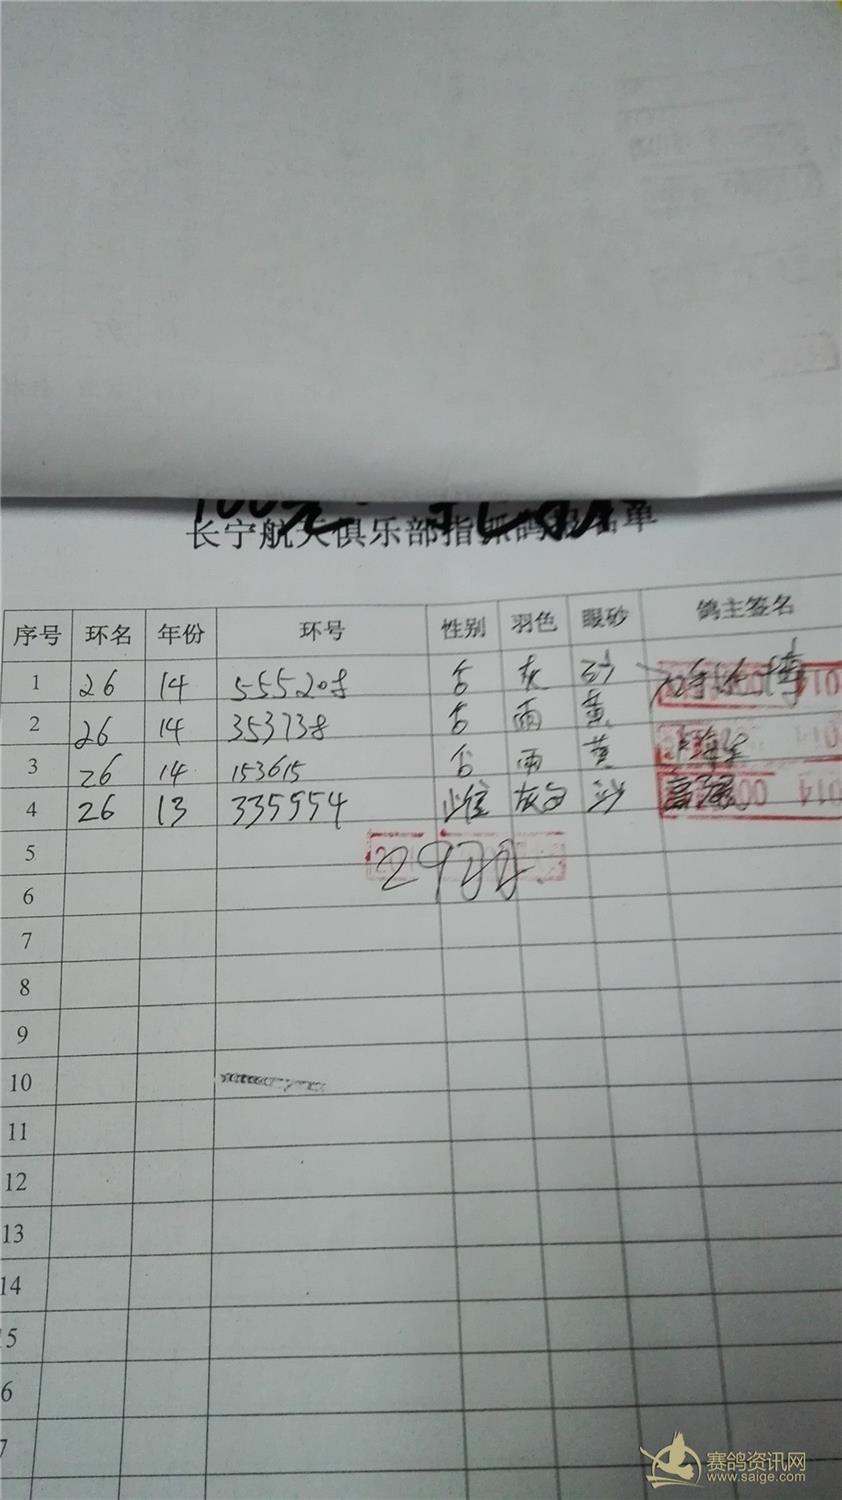 100元
长宁航天俱乐部指抓鸽报名单
序号 环名 年份 环号 性别 羽色 眼砂 鸽主签名
1 26 14 555208 灰 砂
2 26 14 353738 雨 黄
3 26 14 153615 雨 黄
4 26 13 335954 雌 灰白 沙
5
29羽
6
7
8
9
10
11
12
13
14
15
6
7
赛鸽资讯网
www.saige.com